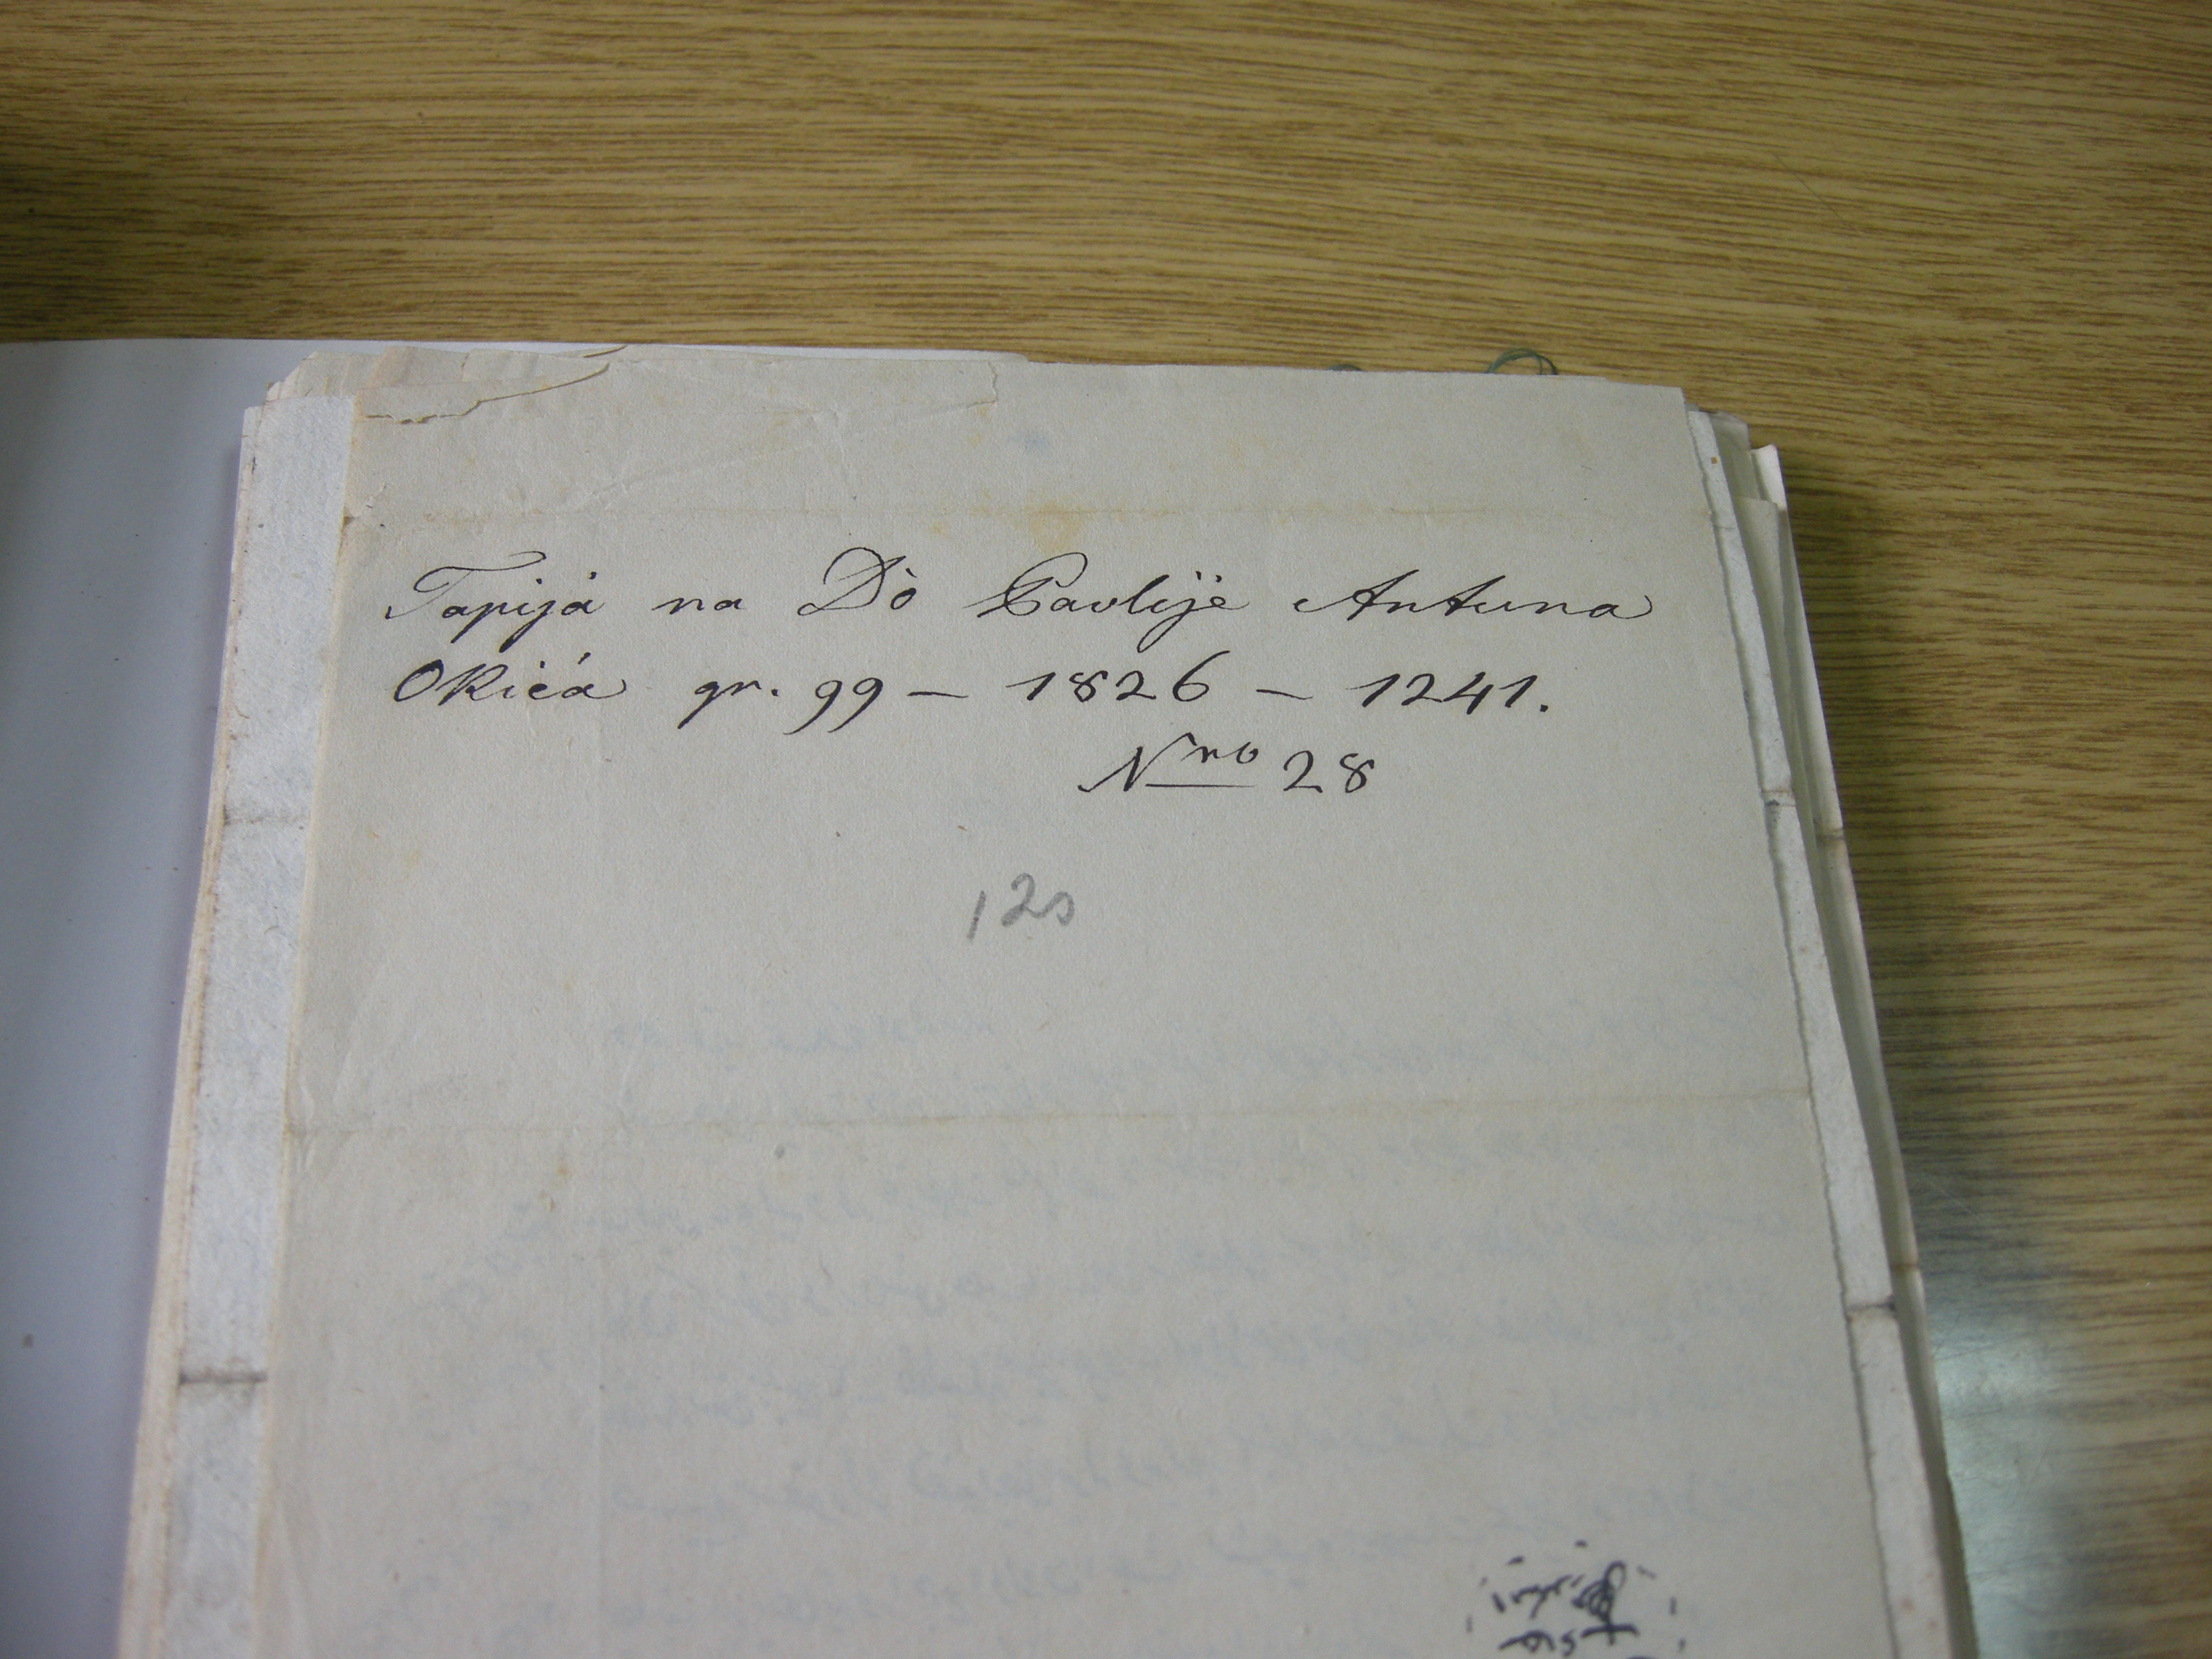 Tapijà na Dò Pavlije Antuna
Okića gr. 99 – 1826 – 1241.
Nro 28
120